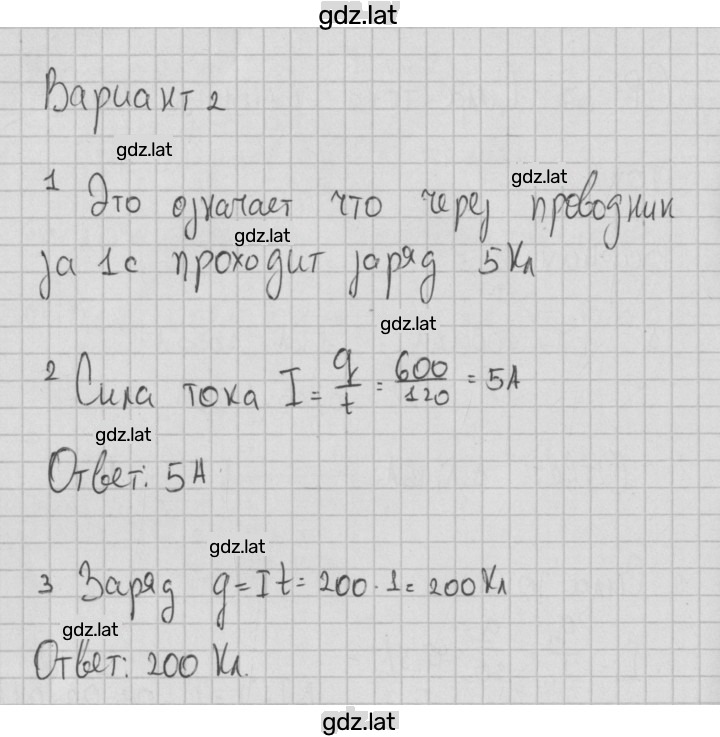 gdz.lat
Вариант 2
gdz.lat
gdz.lat
1 Это означает что через проводник
gdz.lat
за 1с проходит заряд 5 Кл
gdz.lat
2 Сила тока I = q/t = 600/120 = 5А
gdz.lat
Ответ: 5А
gdz.lat
3 Заряд q = It = 200 · 1 = 200 Кл
gdz.lat
Ответ: 200 Кл.
gdz.lat